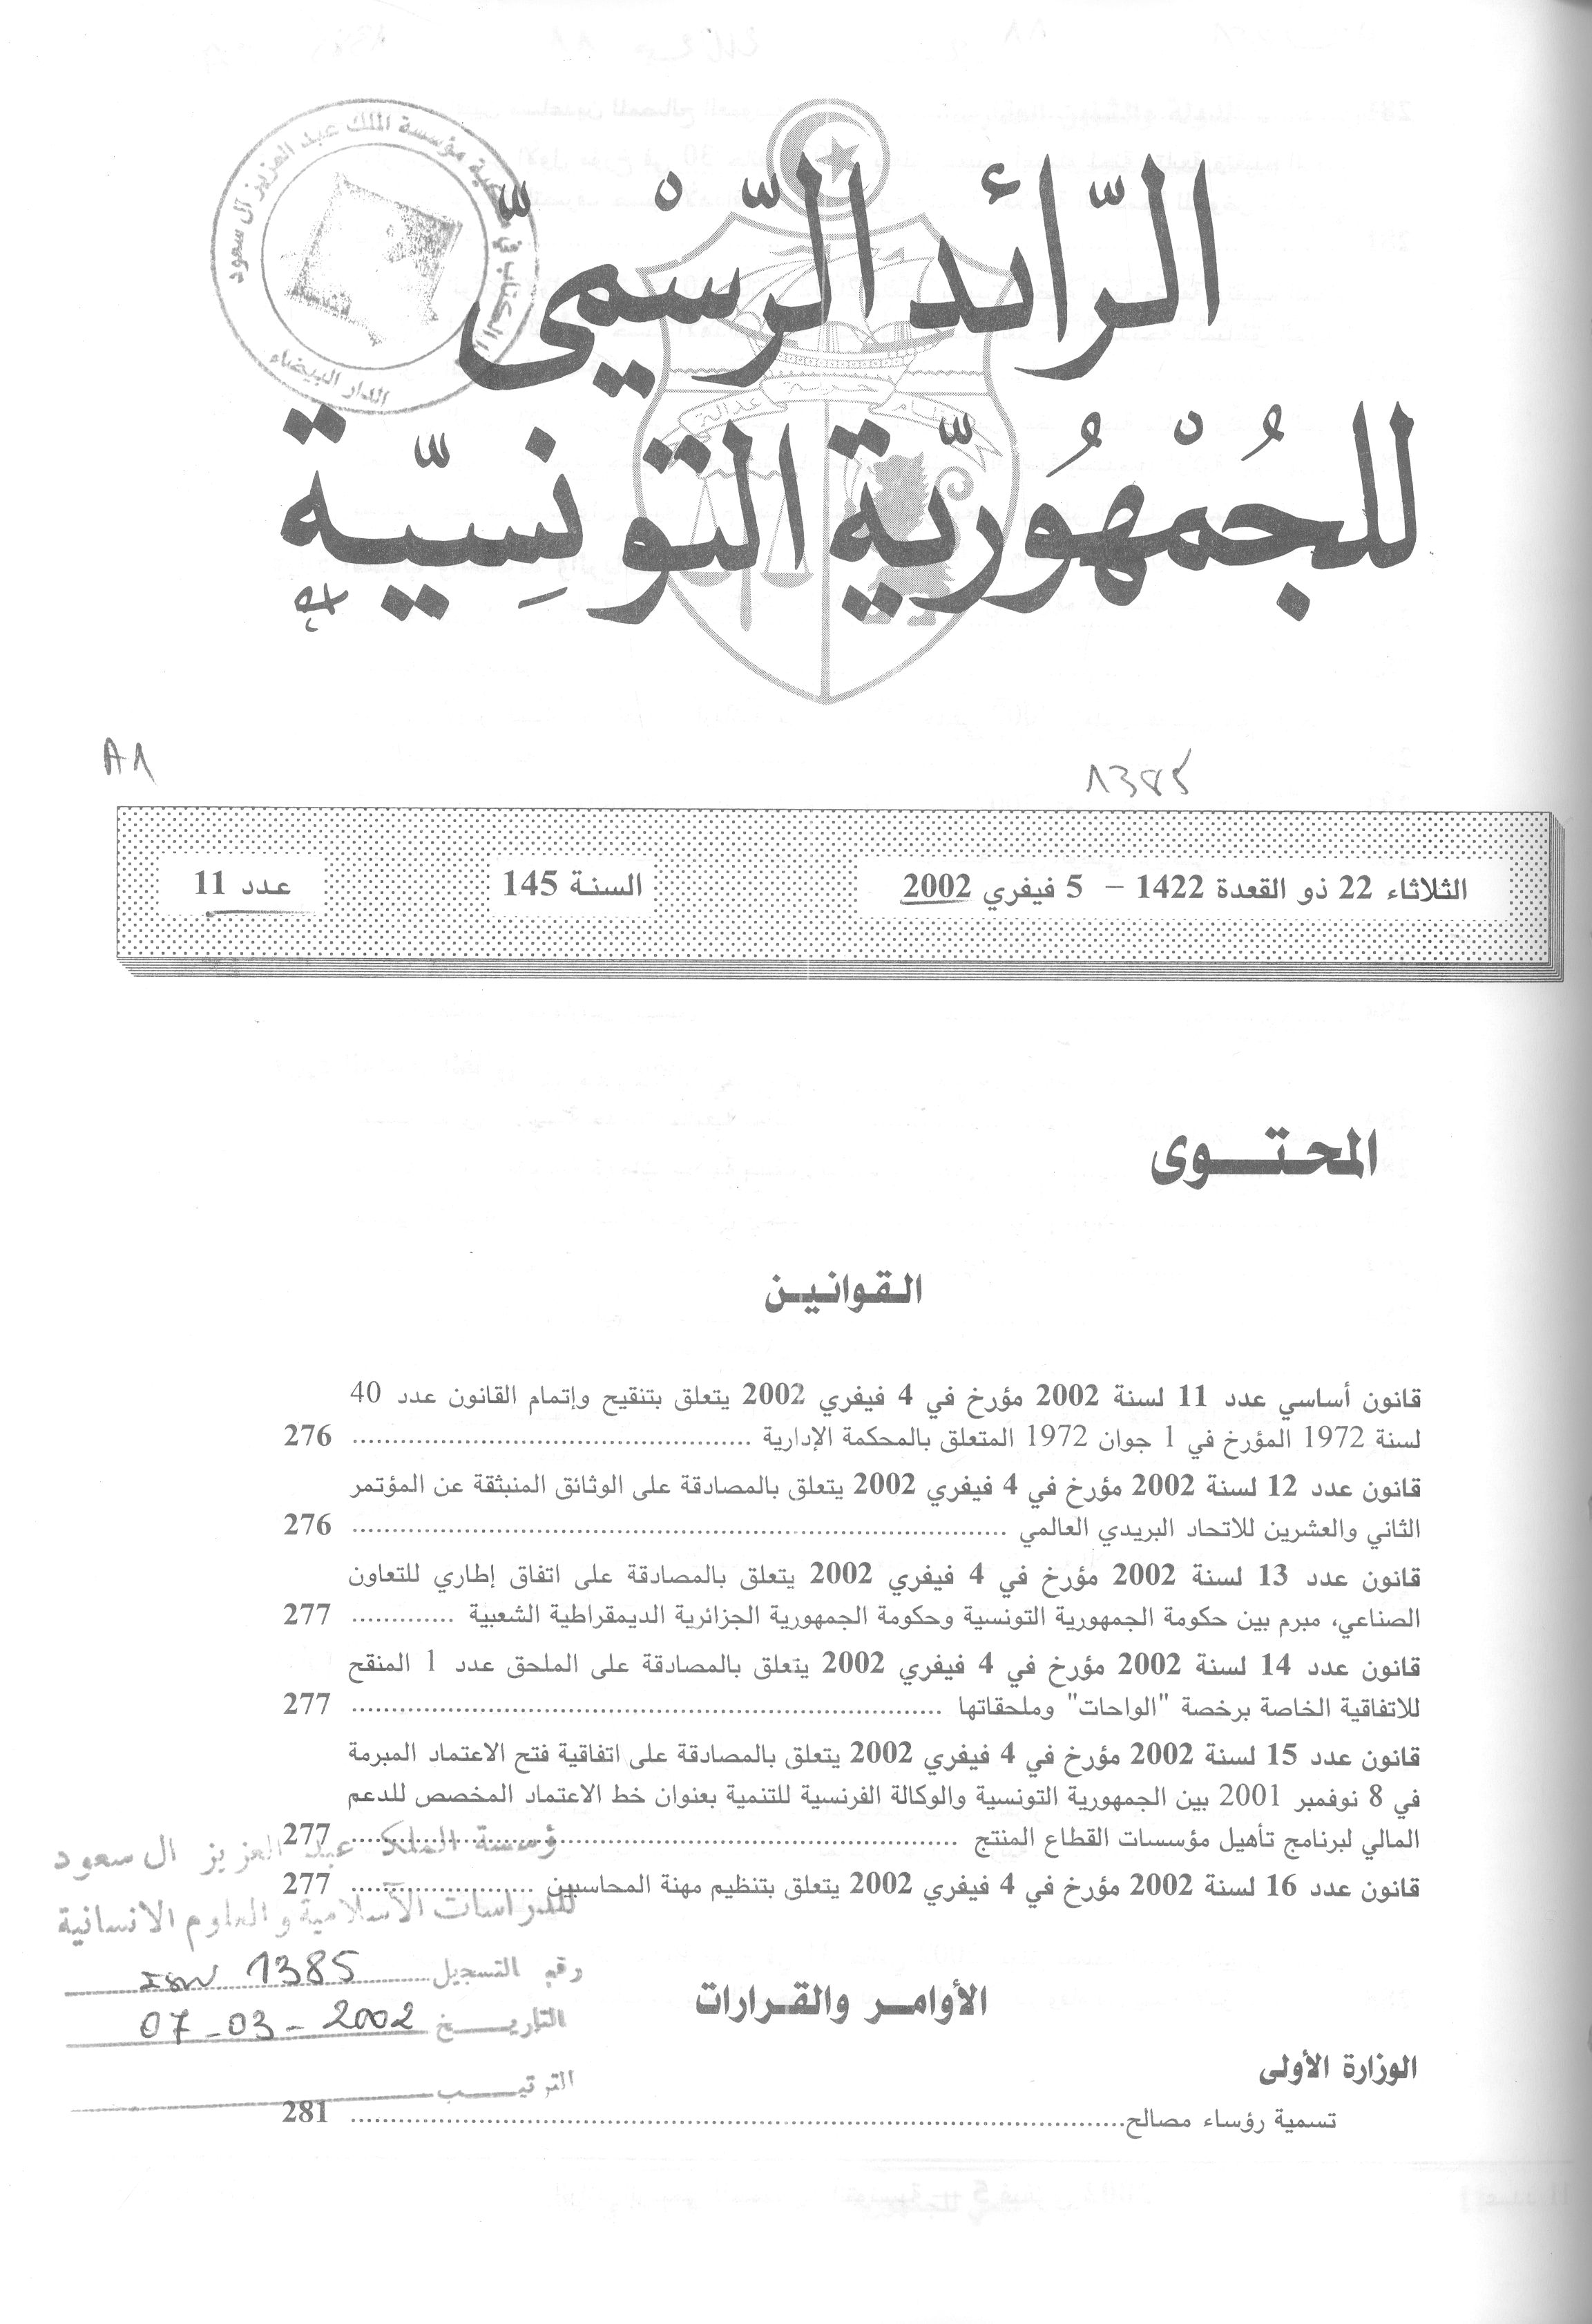 الرّائد الرّسْمِيّ
للجُمْهُوريّة التونِسيّة
A1
1385
الثلاثاء 22 ذو القعدة 1422 – 5 فيفري 2002
السنة 145
عدد 11
المحتوى
القوانين
قانون أساسي عدد 11 لسنة 2002 مؤرخ في 4 فيفري 2002 يتعلق بتنقيح وإتمام القانون عدد 40
لسنة 1972 المؤرخ في 1 جوان 1972 المتعلق بالمحكمة الإدارية ........................ 276
قانون عدد 12 لسنة 2002 مؤرخ في 4 فيفري 2002 يتعلق بالمصادقة على الوثائق المنبثقة عن المؤتمر
الثاني والعشرين للاتحاد البريدي العالمي ........................ 276
قانون عدد 13 لسنة 2002 مؤرخ في 4 فيفري 2002 يتعلق بالمصادقة على اتفاق إطاري للتعاون
الصناعي، مبرم بين حكومة الجمهورية التونسية وحكومة الجمهورية الجزائرية الديمقراطية الشعبية ............. 277
قانون عدد 14 لسنة 2002 مؤرخ في 4 فيفري 2002 يتعلق بالمصادقة على الملحق عدد 1 المنقح
للاتفاقية الخاصة برخصة "الواحات" وملحقاتها ........................ 277
قانون عدد 15 لسنة 2002 مؤرخ في 4 فيفري 2002 يتعلق بالمصادقة على اتفاقية فتح الاعتماد المبرمة
في 8 نوفمبر 2001 بين الجمهورية التونسية والوكالة الفرنسية للتنمية بعنوان خط الاعتماد المخصص للدعم
المالي لبرنامج تأهيل مؤسسات القطاع المنتج ........................ 277
قانون عدد 16 لسنة 2002 مؤرخ في 4 فيفري 2002 يتعلق بتنظيم مهنة المحاسبين ........................ 277
ؤسسة الملك عبد العزيز ال سعود
للدراسات الاسلامية والعلوم الانسانية
رقم التسجيل 1385
التاريخ 07-03-2002
الترتيب
الأوامر والقرارات
الوزارة الأولى
تسمية رؤساء مصالح ........................ 281
مؤسسة الملك عبد العزيز ال سعود
الدار البيضاء